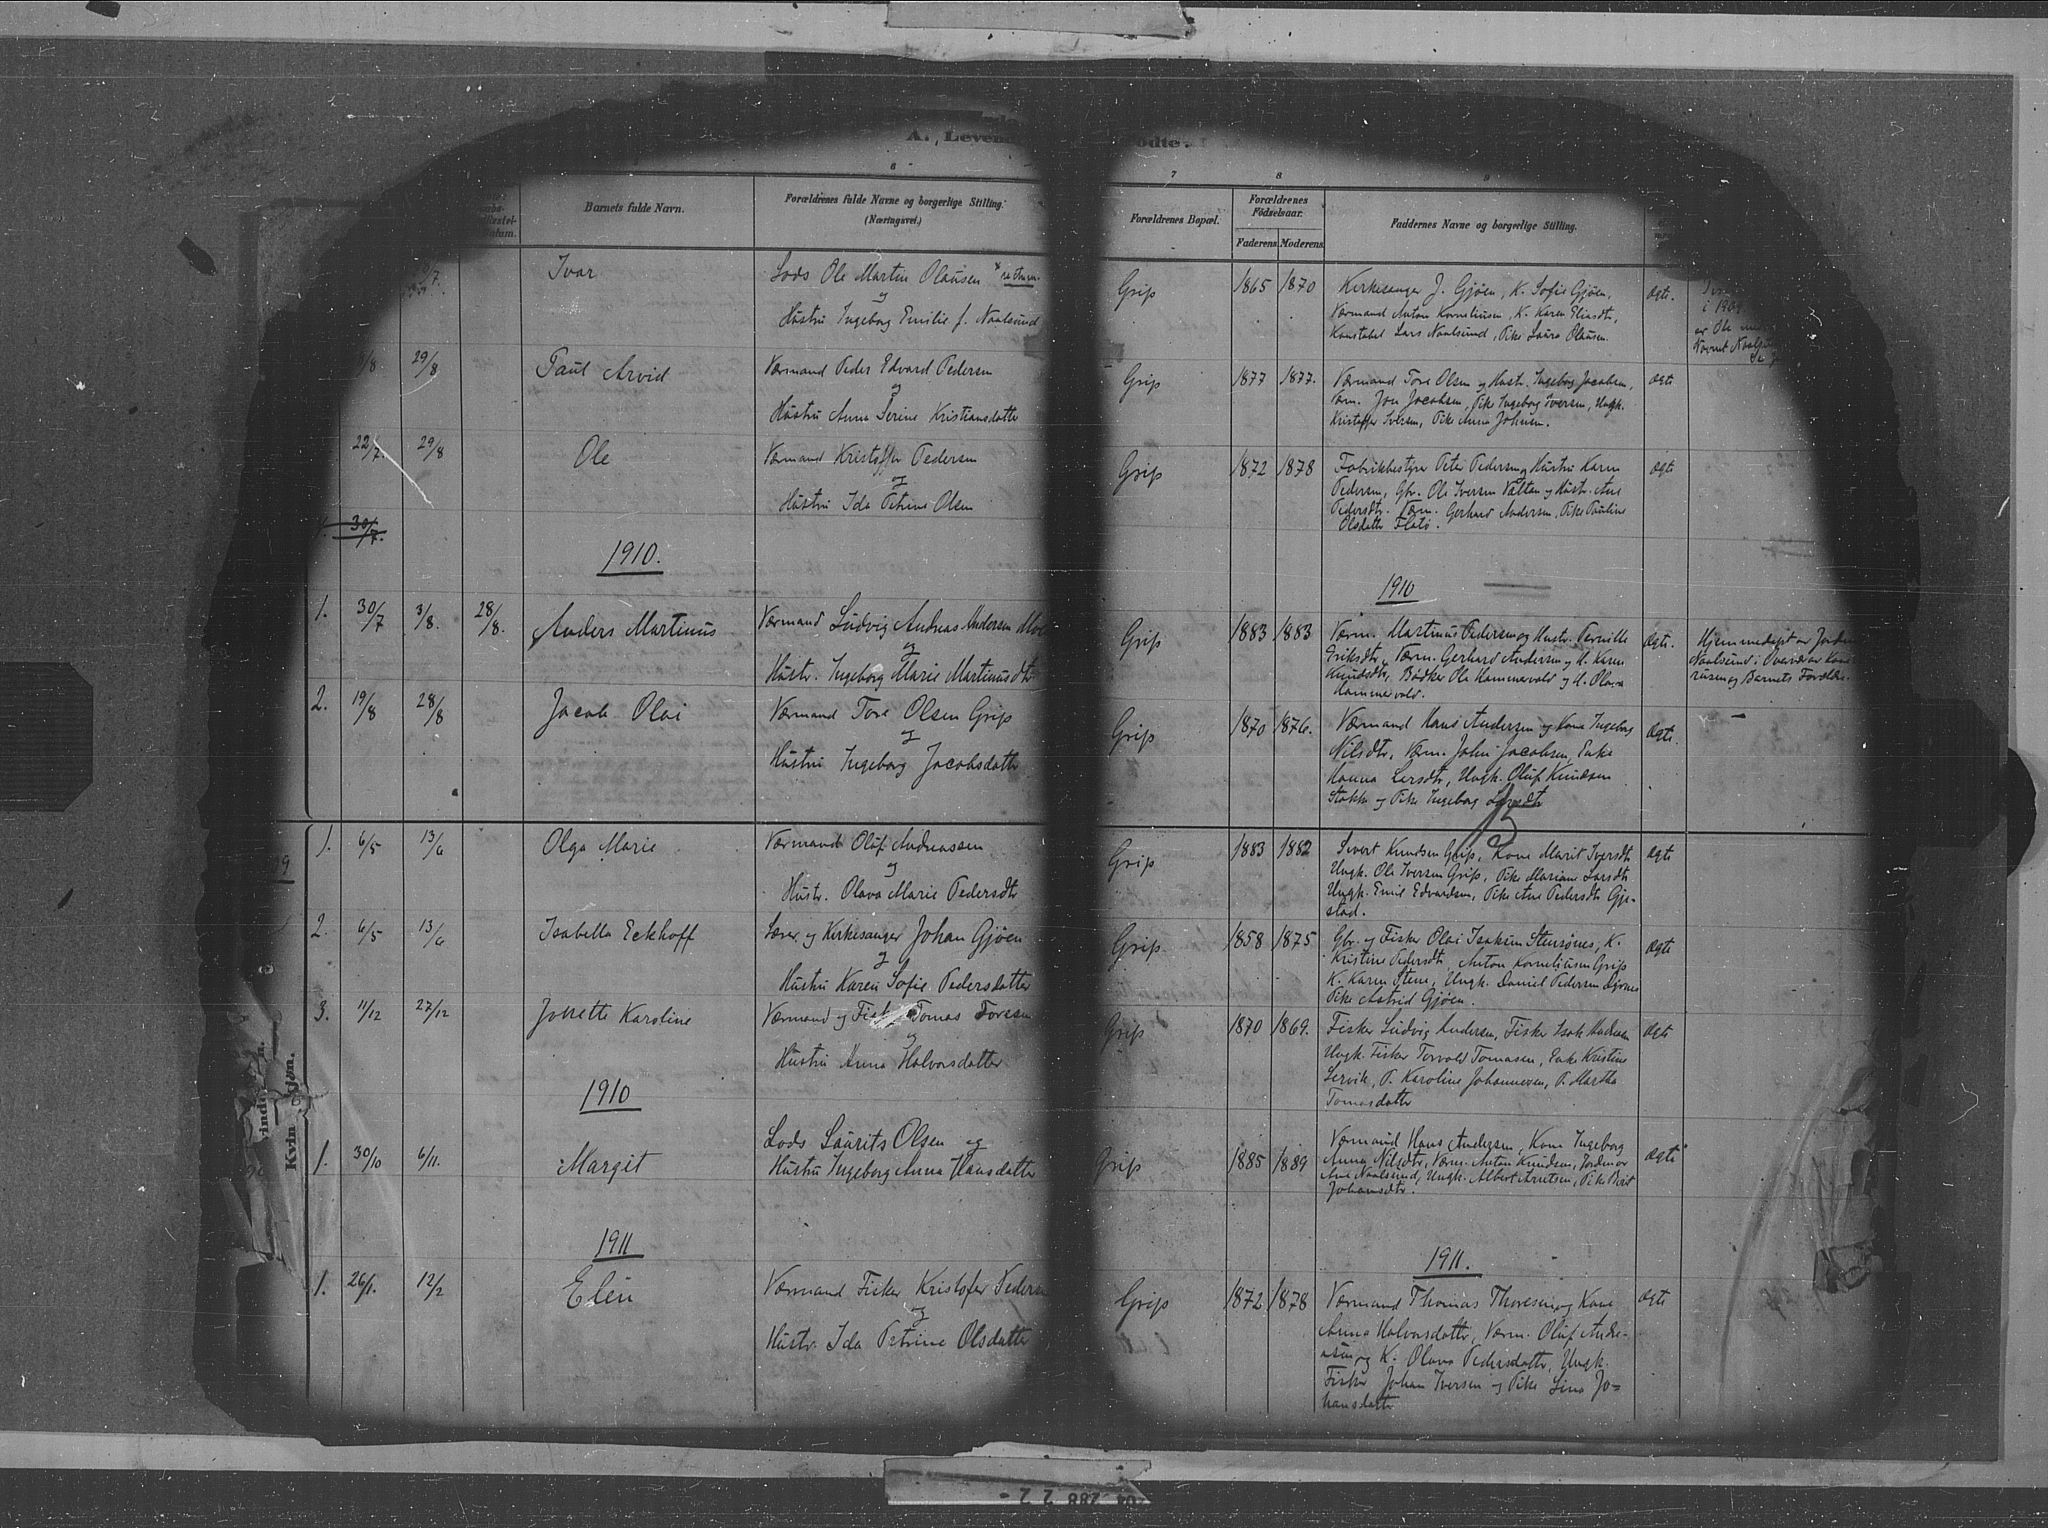 A. Leven
ødte.
6
Barnets fulde Navn.
Forældrenes fulde Navne og borgerlige Stilling.
(Næringsvei.)
7
8
9
Forældrenes Bopæl.
Forældrenes Fødselsaar.
Faderens. Moderens.
Faddernes Navne og borgerlige Stilling.
Ivar
Lods Ole Martin Olausen
og
Hustru Ingeborg Emilie f. Naalsund
Grip 1865 1870
Kirkesanger J. Gjøen, K. Sofie Gjøen,
Værmand Anton Korneliusen, K. Karen Eliasdtr,
Konstabel Lars Naalsund, Pike Laura Olausen.
Ægte.
i 190
29/8 Paul Arvid
Værmand Peder Edvard Pedersen
og
Hustru Anna Serine Kristiansdatter
Grip 1877 1877.
Værmand Tore Olsen og Hustr. Ingeborg Jacobsen,
Værm. Jon Jacobsen, Pike Ingeborg Iversen, Ungk.
Kristoffer Iversen, Pike Anna Johnsen.
Ægte
22/7. 29/8 Ole
Værmand Kristoffer Pedersen
og
Hustru Ida Petrine Olsen
Grip 1872 1878
Fabrikbestyrer Peter Pedersen og Hustru Karen
Pedersen, Gbr. Ole Iversen Vatten og Hustr. Ane
Pedersdtr. Værm. Gerhard Andersen, Pike Pauline
Olsdatter Flatø.
Ægte
1. 30/7.
1910.
1910
1. 30/7 3/8. 28/8. Anders Martinus
Værmand Ludvig Andreas Andersen
og
Hustr. Ingeborg Marie Martinusdtr
Grip 1883 1883
Værm. Martinus Pedersen og Hustr. Pernille
Eriksdtr, Værm. Gerhard Andersen og H. Karen
Knudsdtr, Bødker Ole Hammervold og H. Olava
Hammervold.
Ægte.
Hjemmedøpt av Jordm
Naalsund i Overvær av
og Barnets Forældre.
2. 19/8 28/8 Jacob Olai
Værmand Tore Olsen Grip
og
Hustru Ingeborg Jacobsdatter
Grip 1870 1876.
Værmand Hans Andersen og Kone Ingeborg
Nilsdtr, Værm. John Jacobsen, Enke
Hanna Larsdtr, Ungk. Oluf Knudsen
Stokke og Pike Ingeborg Larsdtr
Ægte.
1. 6/5 13/6 Olga Marie
Værmand Oluf Andreassen
og
Hustr. Olava Marie Pedersdtr
Grip 1883 1882
Sivert Knudsen Grip, Kone Marit Iversdtr
Ungk. Ole Iversen Grip, Pike Mariane Larsdtr
Ungk. Emil Edvardsen, Pike Ane Pedersdtr Gje-
stad.
Ægte
2. 6/5 13/6 Isabella Eckhoff
Lærer og Kirkesanger Johan Gjøen
og
Hustru Karen Sofie Pedersdatter
Grip 1858 1875
Gbr. og Fisker Olai Isaksen Stensønes, K.
Kristine Pedersdtr, Anton Korneliussen Grip
K. Karen Stene, Ungk. Daniel Pedersen
Pike Astrid Gjøen.
Ægte
3. 11/12 27/12 Josette Karoline
Værmand og Fisker Tomas Toresen
og
Hustru Anna Halvorsdatter
Grip 1870 1869.
Fisker Ludvig Andersen, Fisker Isak Andersen
Ungk. Fisker Torvald Tomasen, Enke Kristine
Lervik, P. Karoline Johannesen, P. Martha
Tomasdatter
Ægte
Kvindekjøn.
1910
1. 30/10 6/11. Margit
Lods Laurits Olsen og
Hustru Ingeborg Anna Hansdatter
Grip 1885 1889
Værmand Hans Andersen, Kone Ingeborg
Anna Nilsdtr, Værm. Anton Knudsen, Jordmor
Ane Naalsund, Ungk. Albert Arntsen, Pike Berit
Johansdtr.
Ægte
1911
1911.
1. 26/1. 12/2 Elen
Værmand Fisker Kristofer Pedersen
og
Hustr. Ida Petrine Olsdatter
Grip 1872 1878
Værmand Thomas Thoresen og Kone
Anna Halvorsdatter, Værm. Oluf Andre-
asen og K. Olava Pedersdatter, Ungk.
Fisker Johan Iversen og Pike Lina Jo-
hansdatter
Ægte